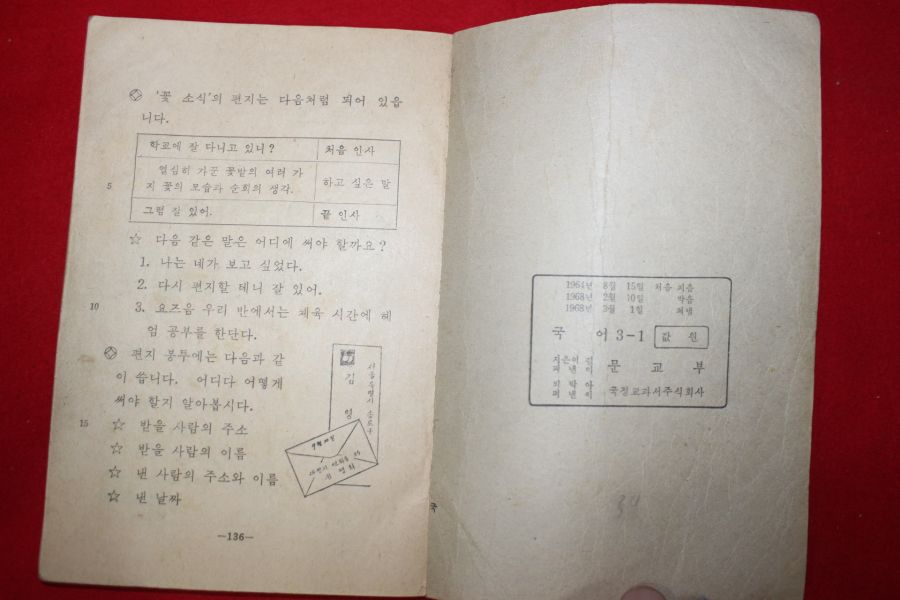 '꽃 소식'의 편지는 다음처럼 되어 있읍
니다.
학교에 잘 다니고 있니? 처음 인사
열심히 가꾼 꽃밭의 여러 가
5 지 꽃의 모습과 순희의 생각. 하고 싶은 말
그럼 잘 있어. 끝 인사
☆ 다음 같은 말은 어디에 써야 할까요?
1. 나는 네가 보고 싶었다.
2. 다시 편지할 테니 잘 있어.
10 3. 요즈음 우리 반에서는 체육 시간에 헤
엄 공부를 한단다.
편지 봉투에는 다음과 같
이 씁니다. 어디다 어떻게
써야 할지 알아봅시다.
15 ☆ 받을 사람의 주소
☆ 받을 사람의 이름
☆ 낸 사람의 주소와 이름
☆ 낸 날짜
김 영
—136—
국
1964년 8월 15일 처음 지음
1968년 2월 10일 박음
1968년 3월 1일 펴냄
국 어 3-1 값 원
지은이 겸
펴낸이 문 교 부
박아
펴낸이 국정교과서주식회사